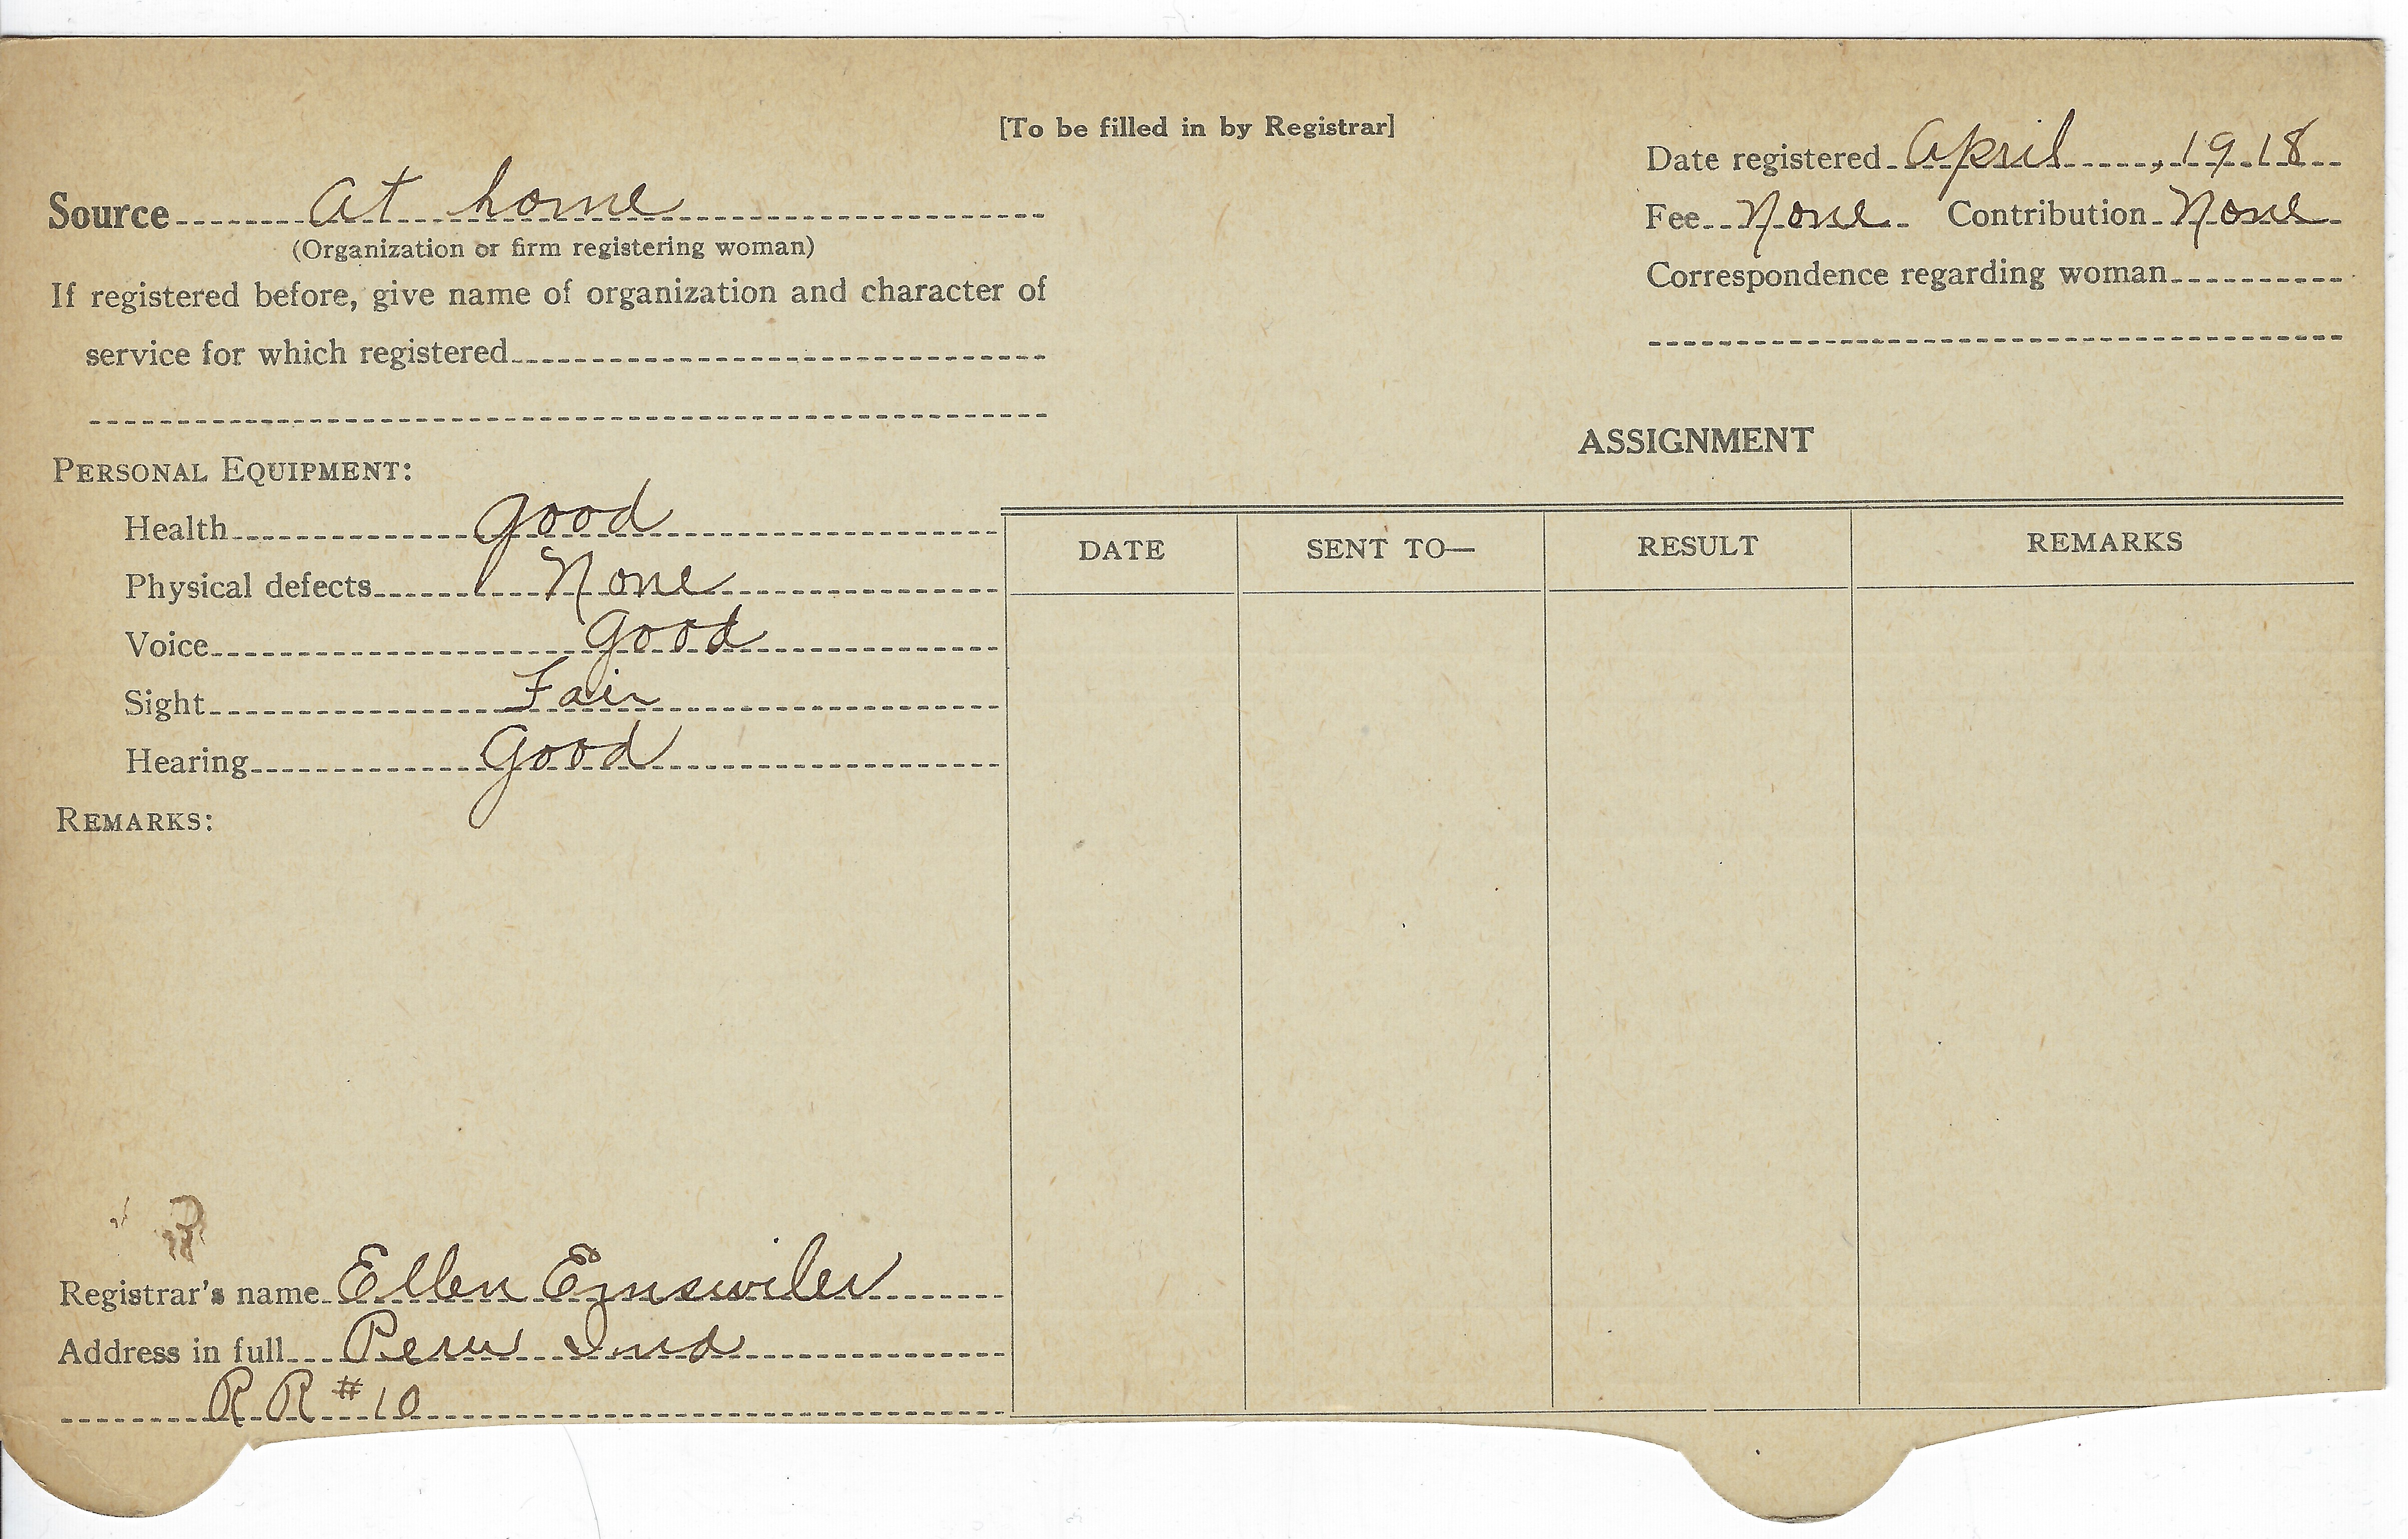 [To be filled in by Registrar]
Date registered April, 1918
Source at home
Fee None Contribution None
(Organization or firm registering woman)
Correspondence regarding woman
If registered before, give name of organization and character of
service for which registered
ASSIGNMENT
PERSONAL EQUIPMENT:
Health good
Physical defects None
Voice good
Sight Fair
Hearing Good
DATE SENT TO— RESULT REMARKS
REMARKS:
Registrar's name Ellen Emswiler
Address in full Peru Ind
R R #10